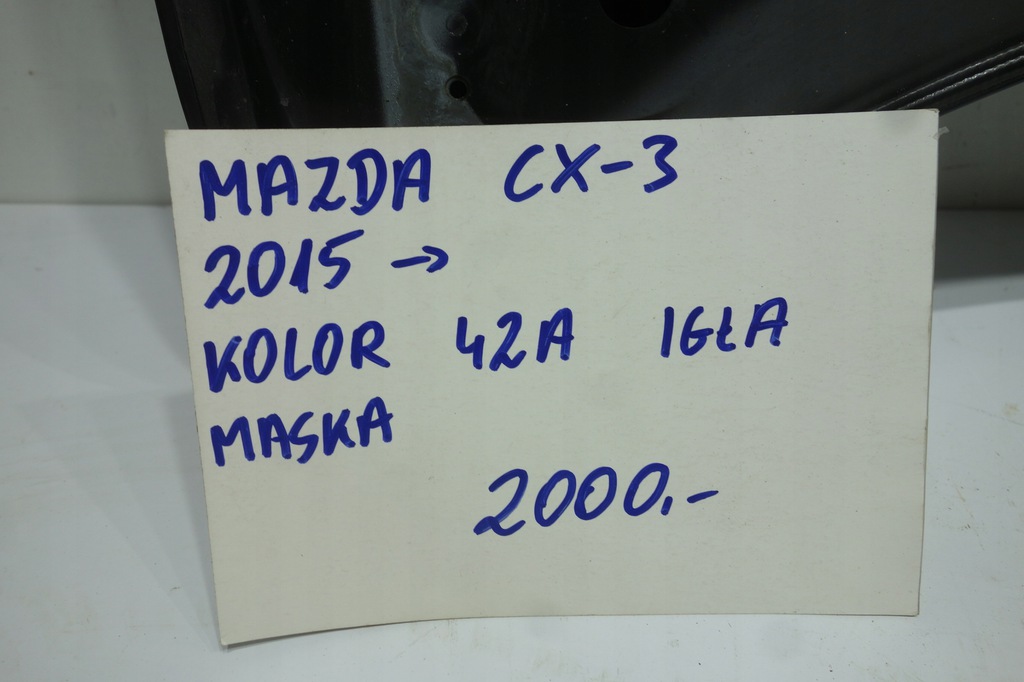 MAZDA CX-3
2015 →
KOLOR 42A IGŁA
MASKA
2000.-